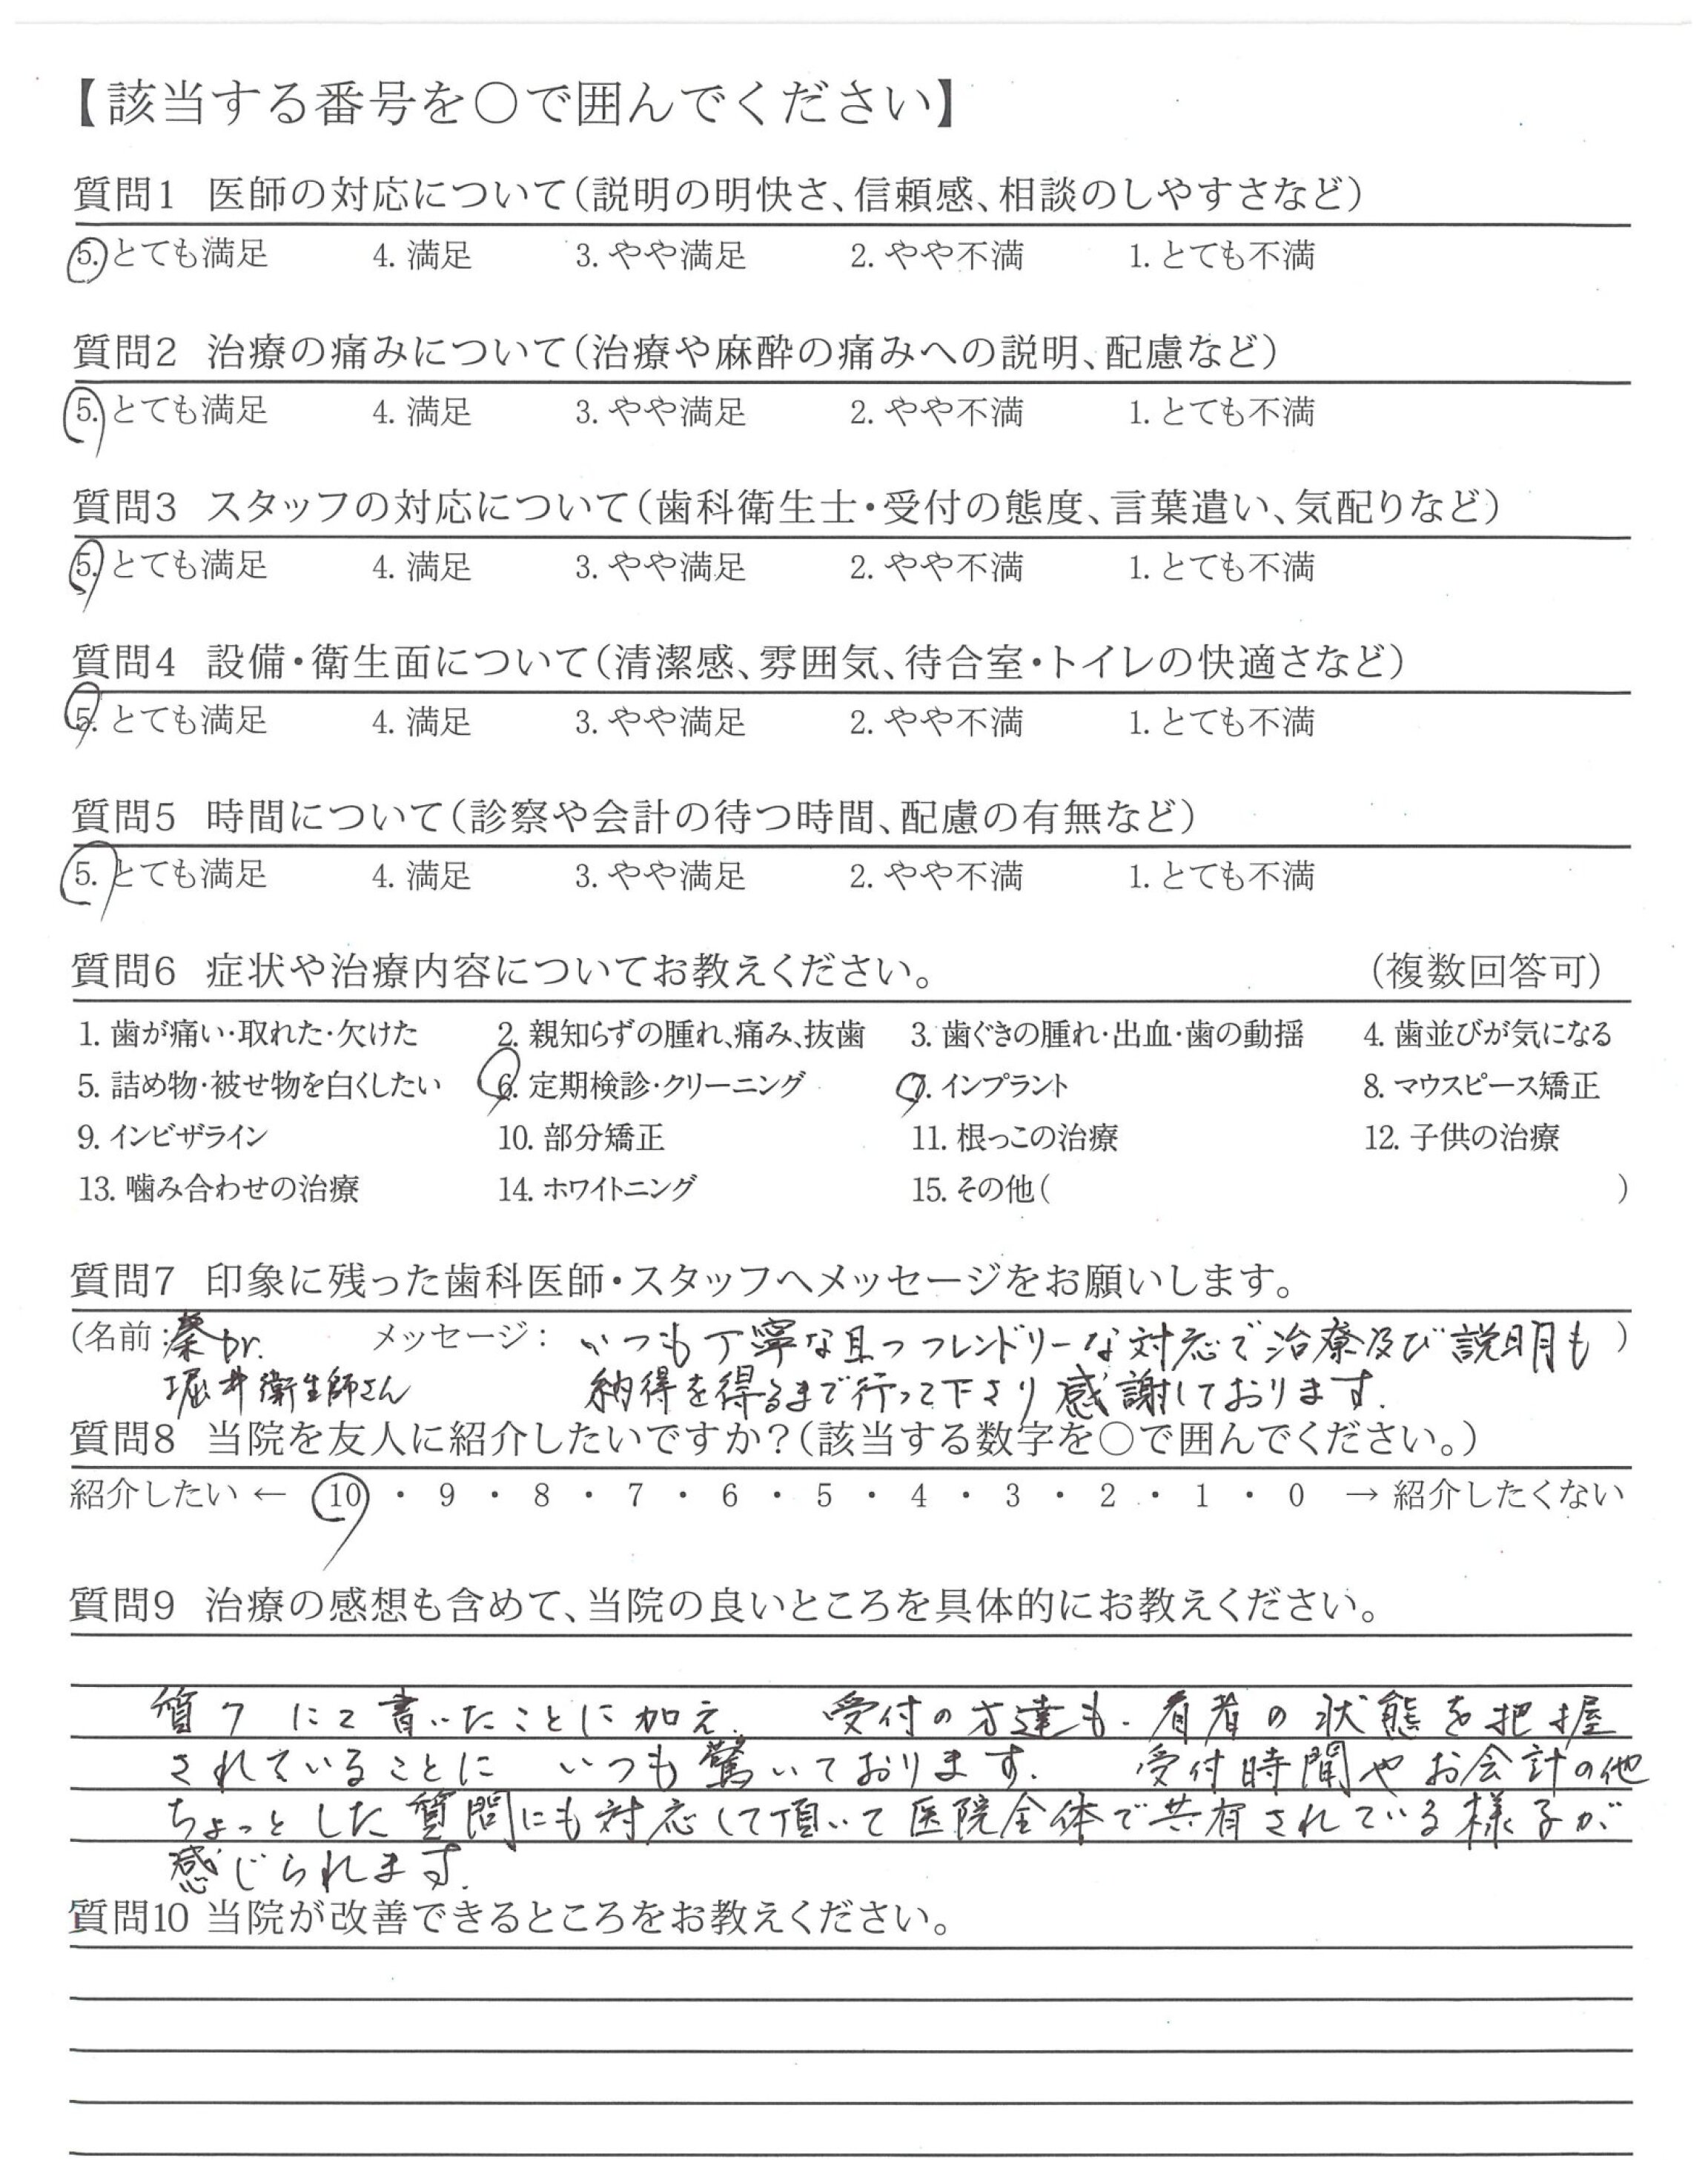 【該当する番号を〇で囲んでください】
質問1 医師の対応について(説明の明快さ、信頼感、相談のしやすさなど)
5. とても満足 4. 満足 3. やや満足 2. やや不満 1. とても不満
質問2 治療の痛みについて(治療や麻酔の痛みへの説明、配慮など)
5. とても満足 4. 満足 3. やや満足 2. やや不満 1. とても不満
質問3 スタッフの対応について(歯科衛生士・受付の態度、言葉遣い、気配りなど)
5. とても満足 4. 満足 3. やや満足 2. やや不満 1. とても不満
質問4 設備・衛生面について(清潔感、雰囲気、待合室・トイレの快適さなど)
5. とても満足 4. 満足 3. やや満足 2. やや不満 1. とても不満
質問5 時間について(診察や会計の待つ時間、配慮の有無など)
5. とても満足 4. 満足 3. やや満足 2. やや不満 1. とても不満
質問6 症状や治療内容についてお教えください。 (複数回答可)
1. 歯が痛い・取れた・欠けた 2. 親知らずの腫れ、痛み、抜歯 3. 歯ぐきの腫れ・出血・歯の動揺 4. 歯並びが気になる
5. 詰め物・被せ物を白くしたい 6. 定期検診・クリーニング 7. インプラント 8. マウスピース矯正
9. インビザライン 10. 部分矯正 11. 根っこの治療 12. 子供の治療
13. 噛み合わせの治療 14. ホワイトニング 15. その他( )
質問7 印象に残った歯科医師・スタッフへメッセージをお願いします。
(名前: Dr. メッセージ: いつも丁寧な且つフレンドリーな対応で治療及び説明も)
堀井衛生師さん 納得を得るまで行って下さり感謝しております.
質問8 当院を友人に紹介したいですか?(該当する数字を〇で囲んでください。)
紹介したい ← 10 ・ 9 ・ 8 ・ 7 ・ 6 ・ 5 ・ 4 ・ 3 ・ 2 ・ 1 ・ 0 → 紹介したくない
質問9 治療の感想も含めて、当院の良いところを具体的にお教えください。
質7 にて書いたことに加え. 受付の方達も. 患者の状態を把握
されていることに いつも驚いております. 受付時間やお会計の他
ちょっとした質問にも対応して頂いて医院全体で共有されている様子が
感じられます.
質問10 当院が改善できるところをお教えください。